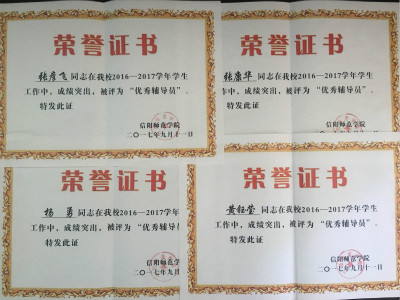 荣誉证书
张彦飞 同志在我校2016—2017学年学生
工作中,成绩突出,被评为“优秀辅导员”.
特发此证
信阳师范学院
二〇一七年九月十一日
荣誉证书
张康华 同志在我校2016—2017学年学生
工作中,成绩突出,被评为“优秀辅导员”.
特发此证
信阳师范学院
二〇一七年九月十一日
荣誉证书
杨勇 同志在我校2016—2017学年
工作中,成绩突出,被评为“优秀辅导
特发此证
信阳师范学院
二〇一七年九月十
荣誉证书
黄钰莹 同志在我校2016—2017学年学生
工作中,成绩突出,被评为“优秀辅导员”.
特发此证
信阳师范学院
二〇一七年九月十一日